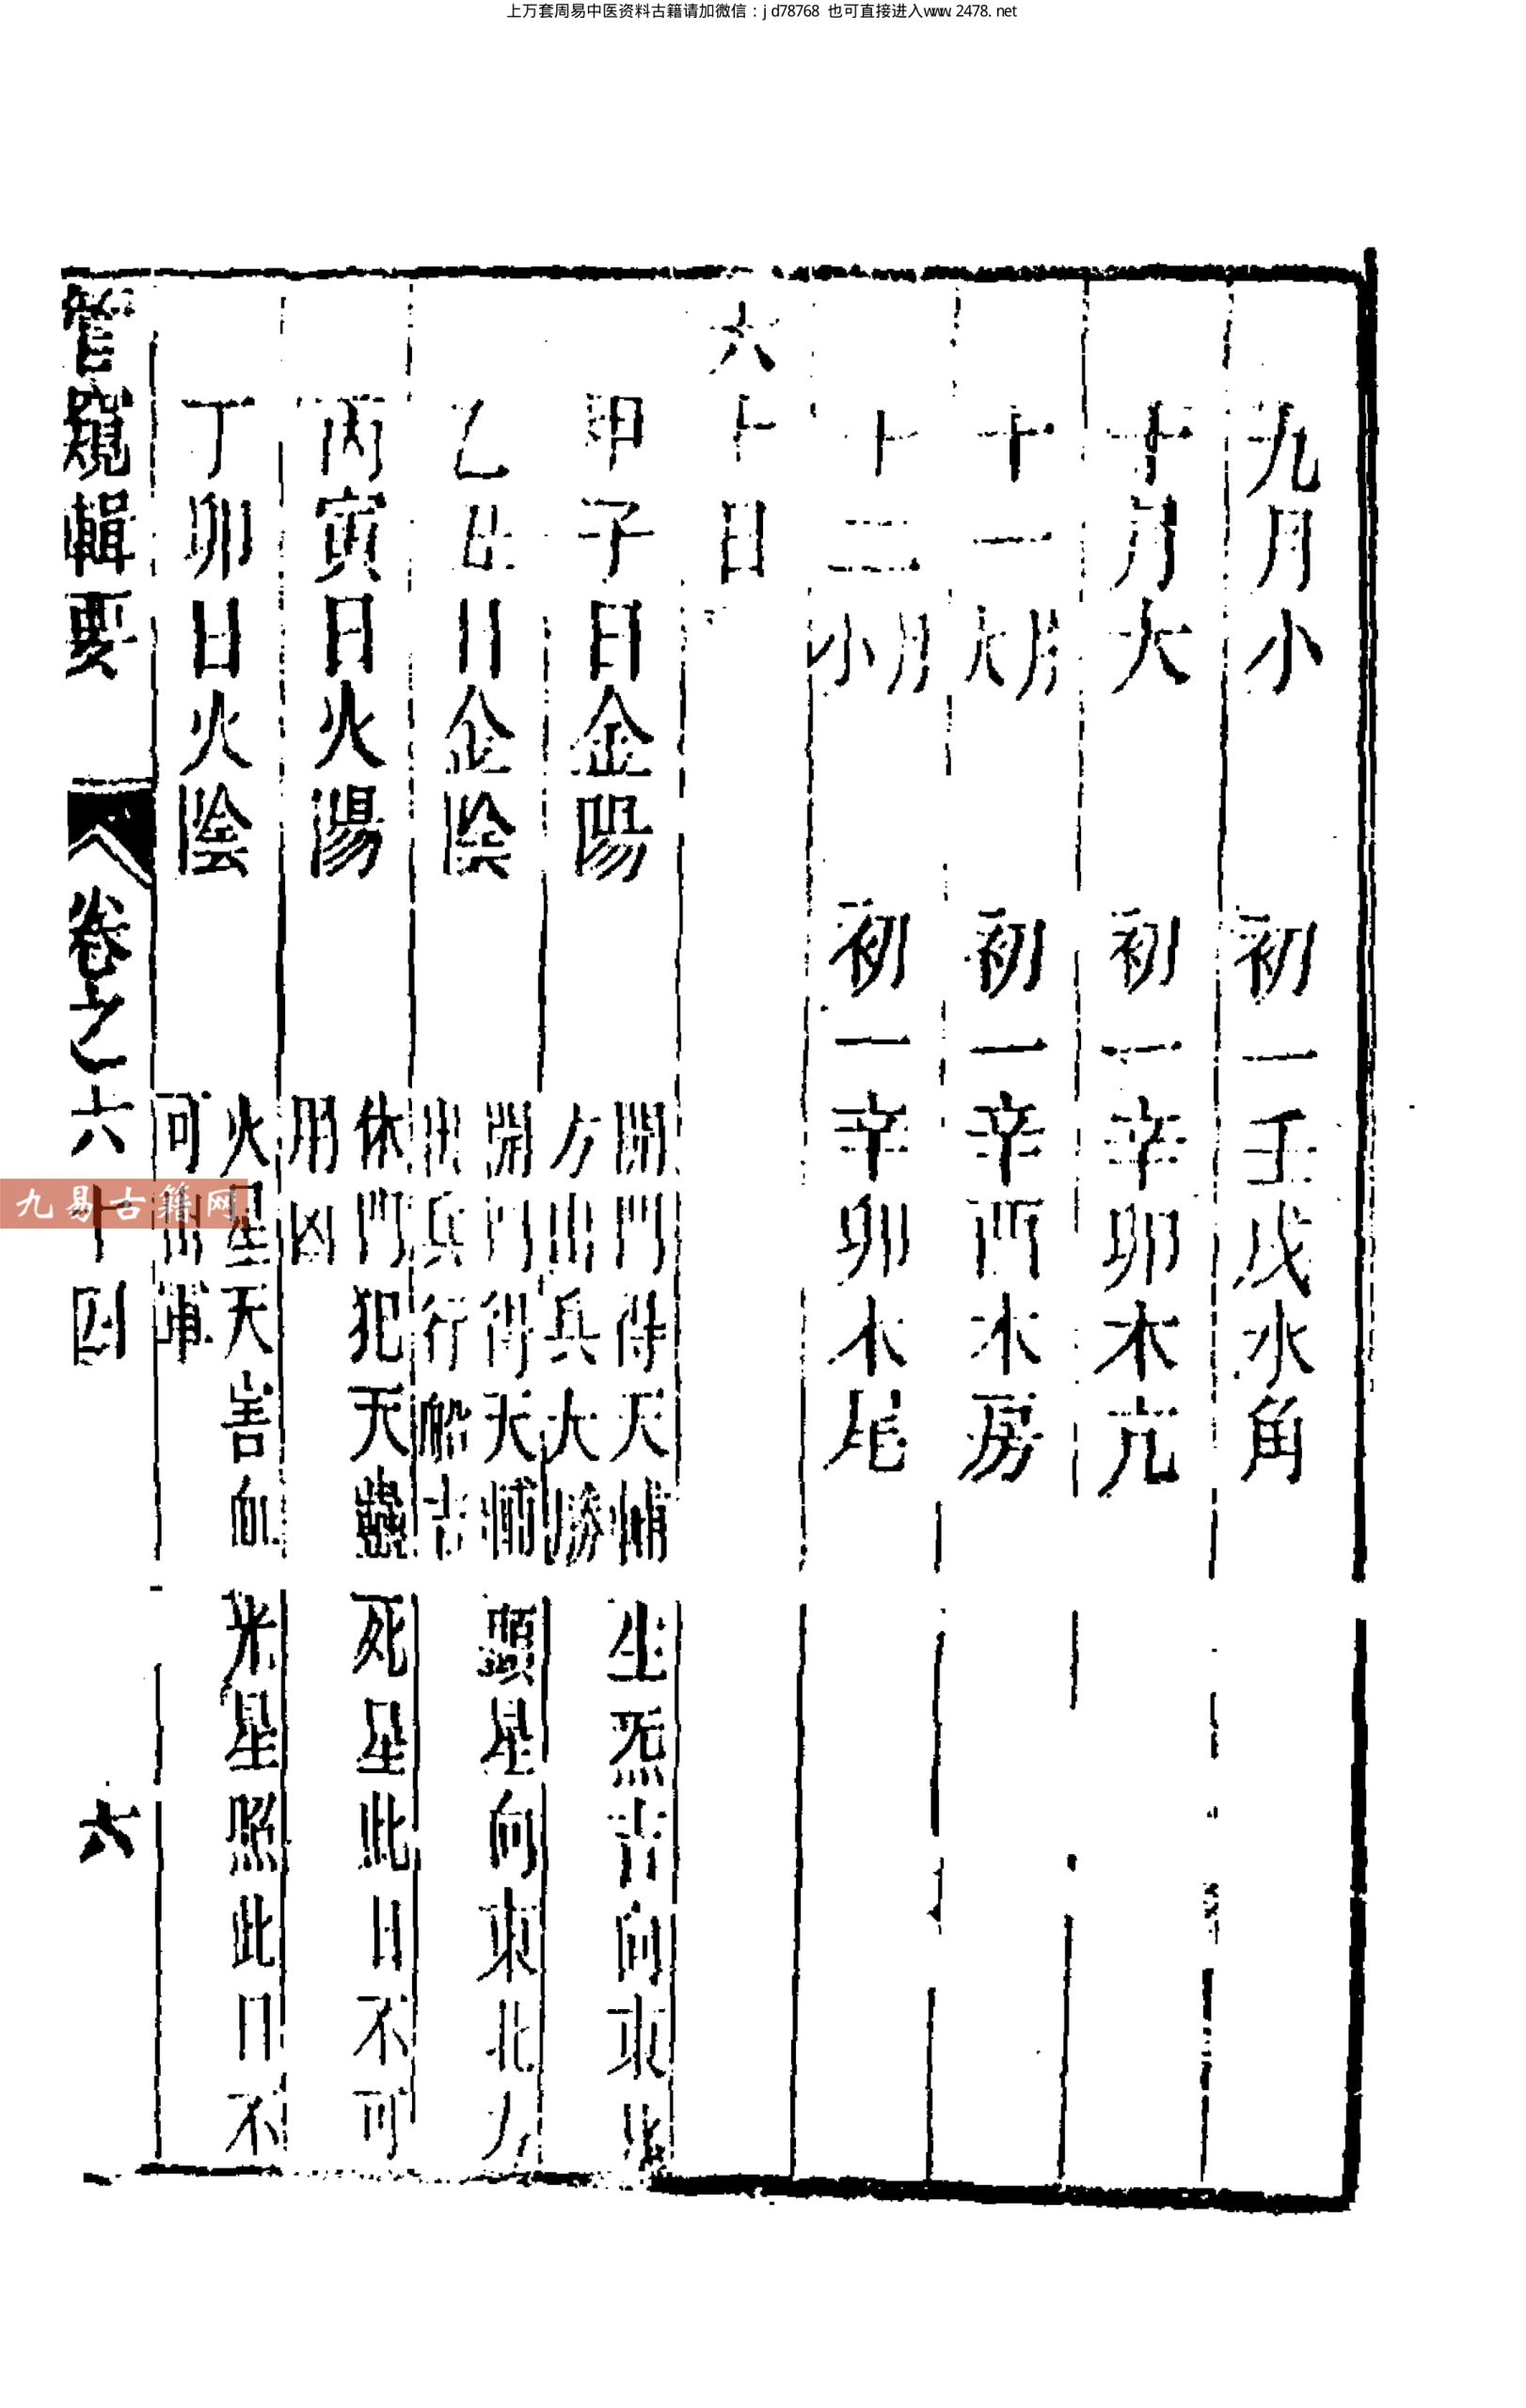 上万套周易中医资料古籍请加微信：jd78768 也可直接进入www.2478.net
九月小 初一壬戌水角
十月大 初一辛卯木亢
十一月大 初一辛酉木房
十二月小 初一辛卯木尾
六十日
甲子日金陽 開門得天輔 生炁吉向東北
方出兵大勝
乙丑日金陰 開門得天輔 顯星向東北方
出兵行船吉
丙寅日火陽 休門犯天 死星此日不可
用凶
丁卯日火陰 火星天害血 光星照此日不
可出捕
管窺輯要 卷之六十四 六
九易古籍网